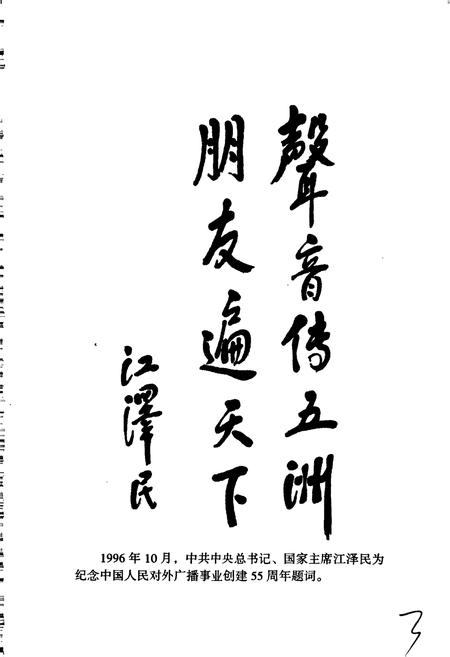 聲音传五洲
朋友遍天下
江泽民
1996年10月，中共中央总书记、国家主席江泽民为
纪念中国人民对外广播事业创建55周年题词。
3